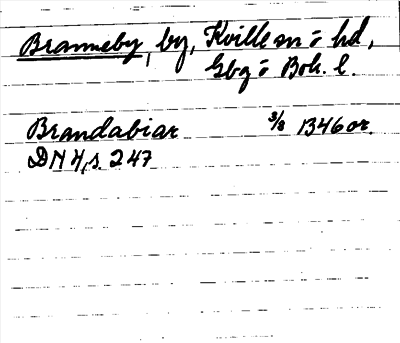 Branneby, by, Kville sn o hd,
Gbg o Boh. l.
Brandabiar 3/8 1346 or.
DN 4, s. 247